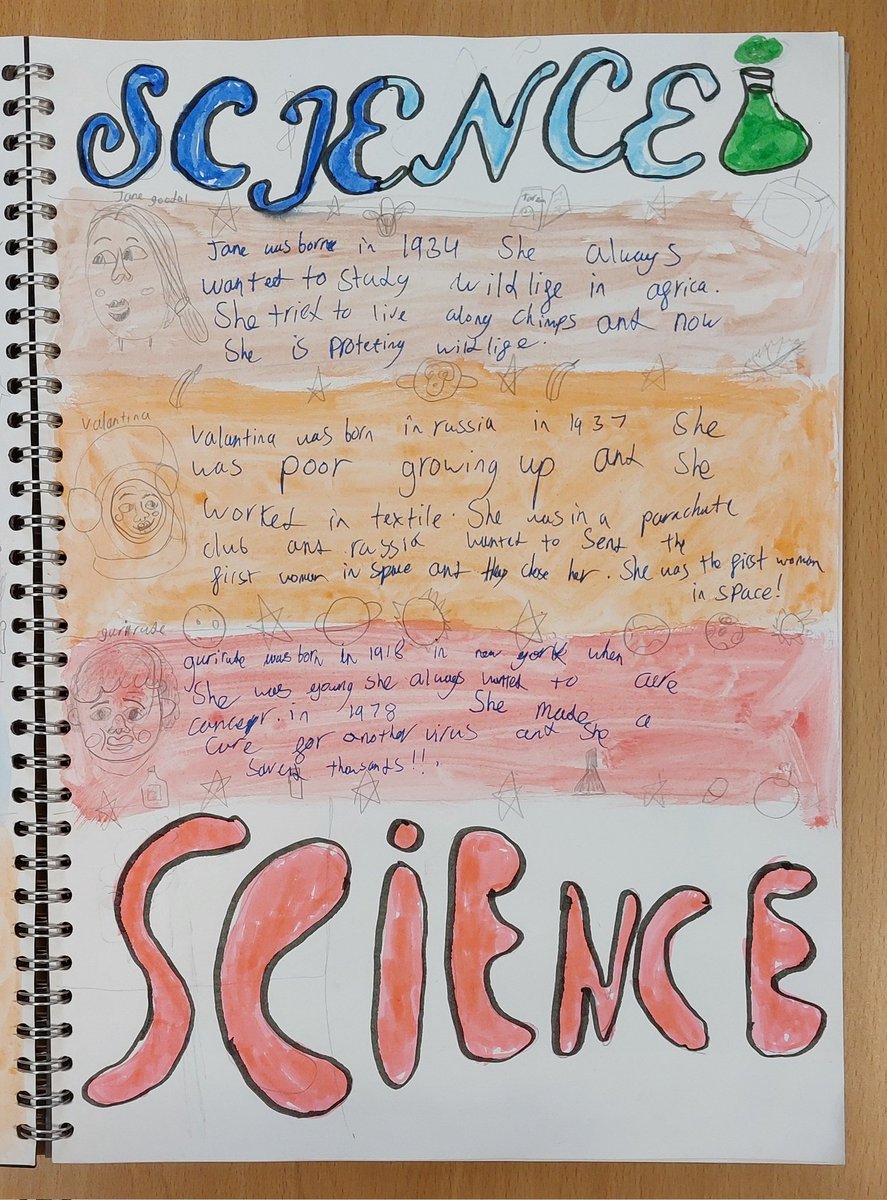 SCIENCE
Jane goodal
Jane was borne in 1934 She always
wanted to study wildlige in agrica.
She tried to live along chimps and now
She is proteting wildlige.
Valantina
Valantina was born in russia in 1937 She
was poor growing up and She
worked in textile. She was in a parachute
club and russia wanted to send the
first women in space and they chose her. She was the first woman
in space!
gurirude
gurirude was born in 1918 in new york when
She was young she always wanted to
cancer. in 1978 She made a
cure for another virus and she
saved thousands!!.
SCIENCE